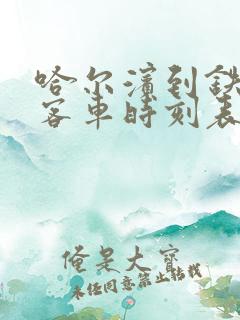 哈尔滨到铁
客车时刻表
俺是大宝
未经同意禁止转载